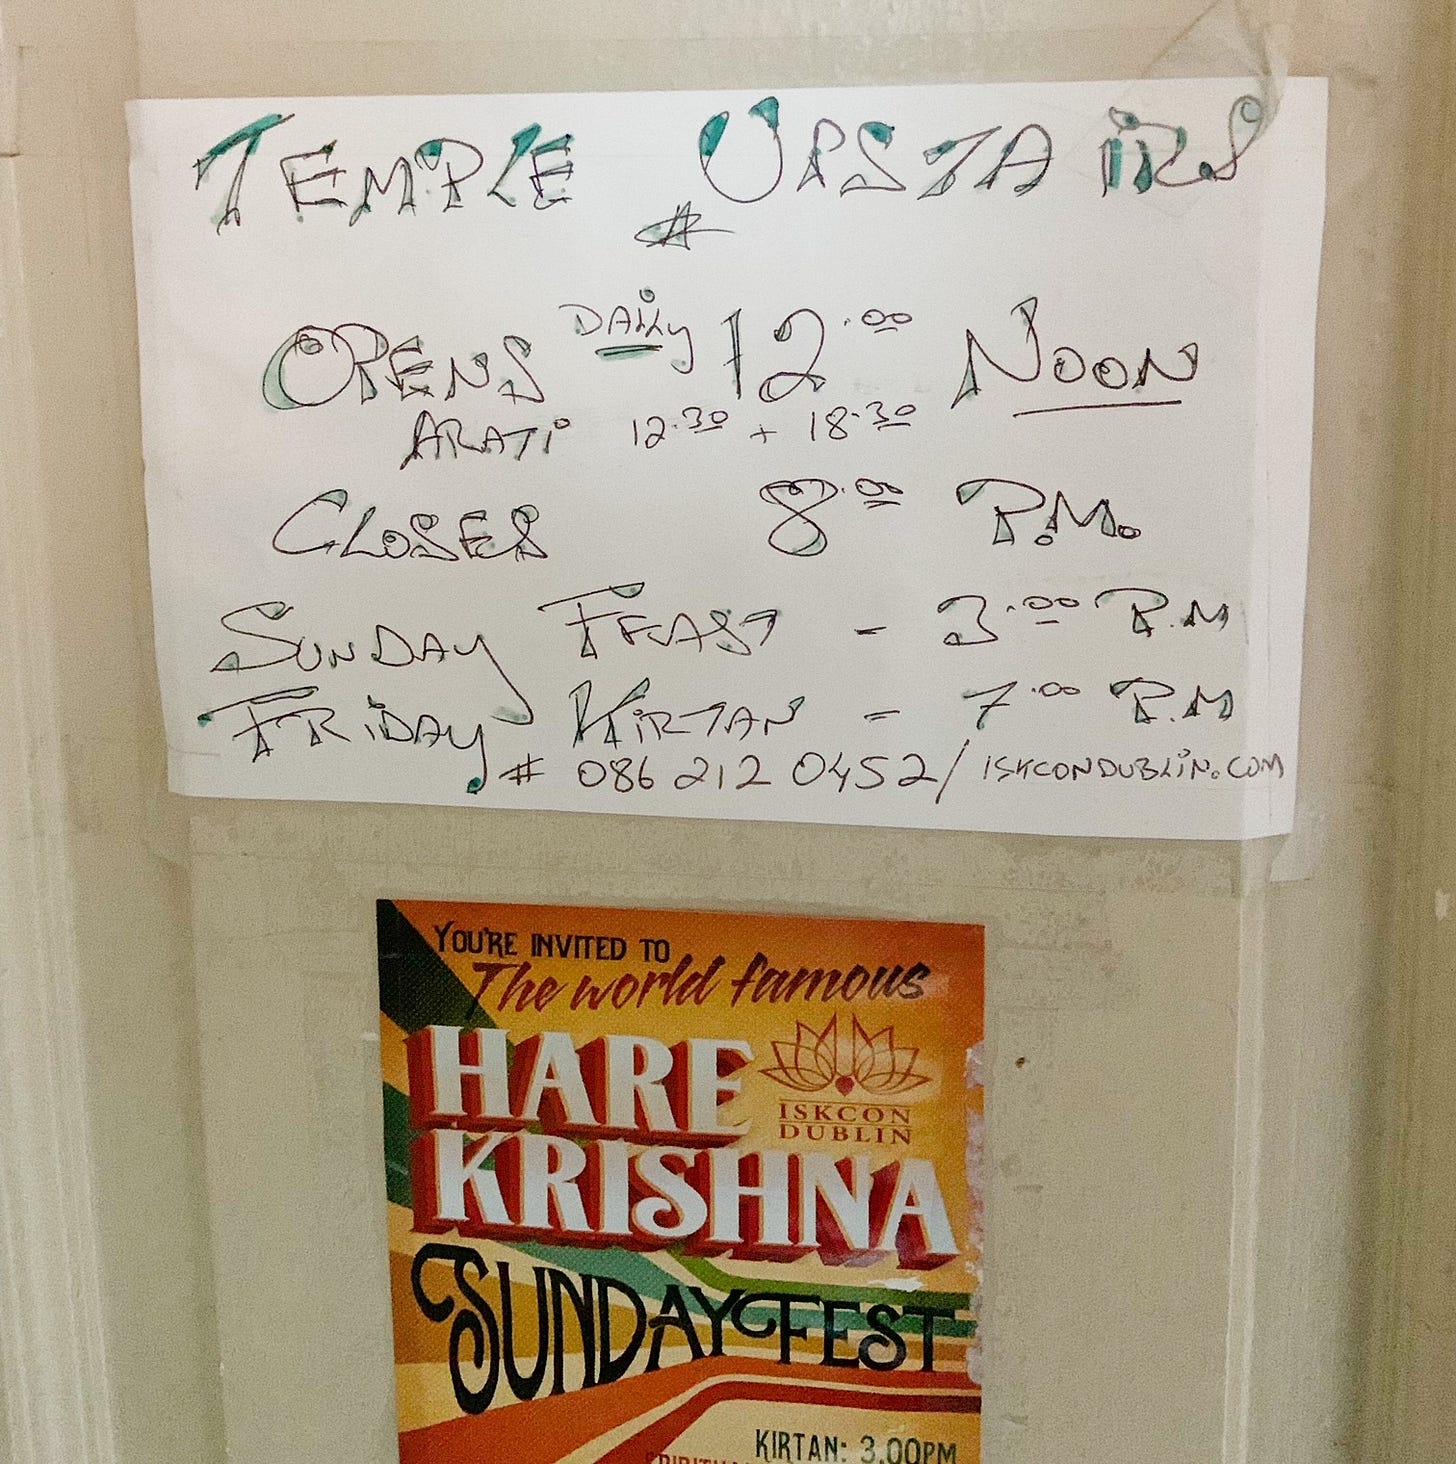 TEMPLE UPSTAIRS
OPENS DAILY 12.00 NOON
ARATI 12.30 + 18.30
CLOSES 8.00 P.M.
SUNDAY FEAST - 3.00 P.M
FRIDAY KIRTAN = 7.00 P.M
# 086 212 0452/ISKCONDUBLIN.COM
YOU'RE INVITED TO
The world famous
HARE
KRISHNA
ISKCON
DUBLIN
SUNDAY FEST
KIRTAN: 3.00PM